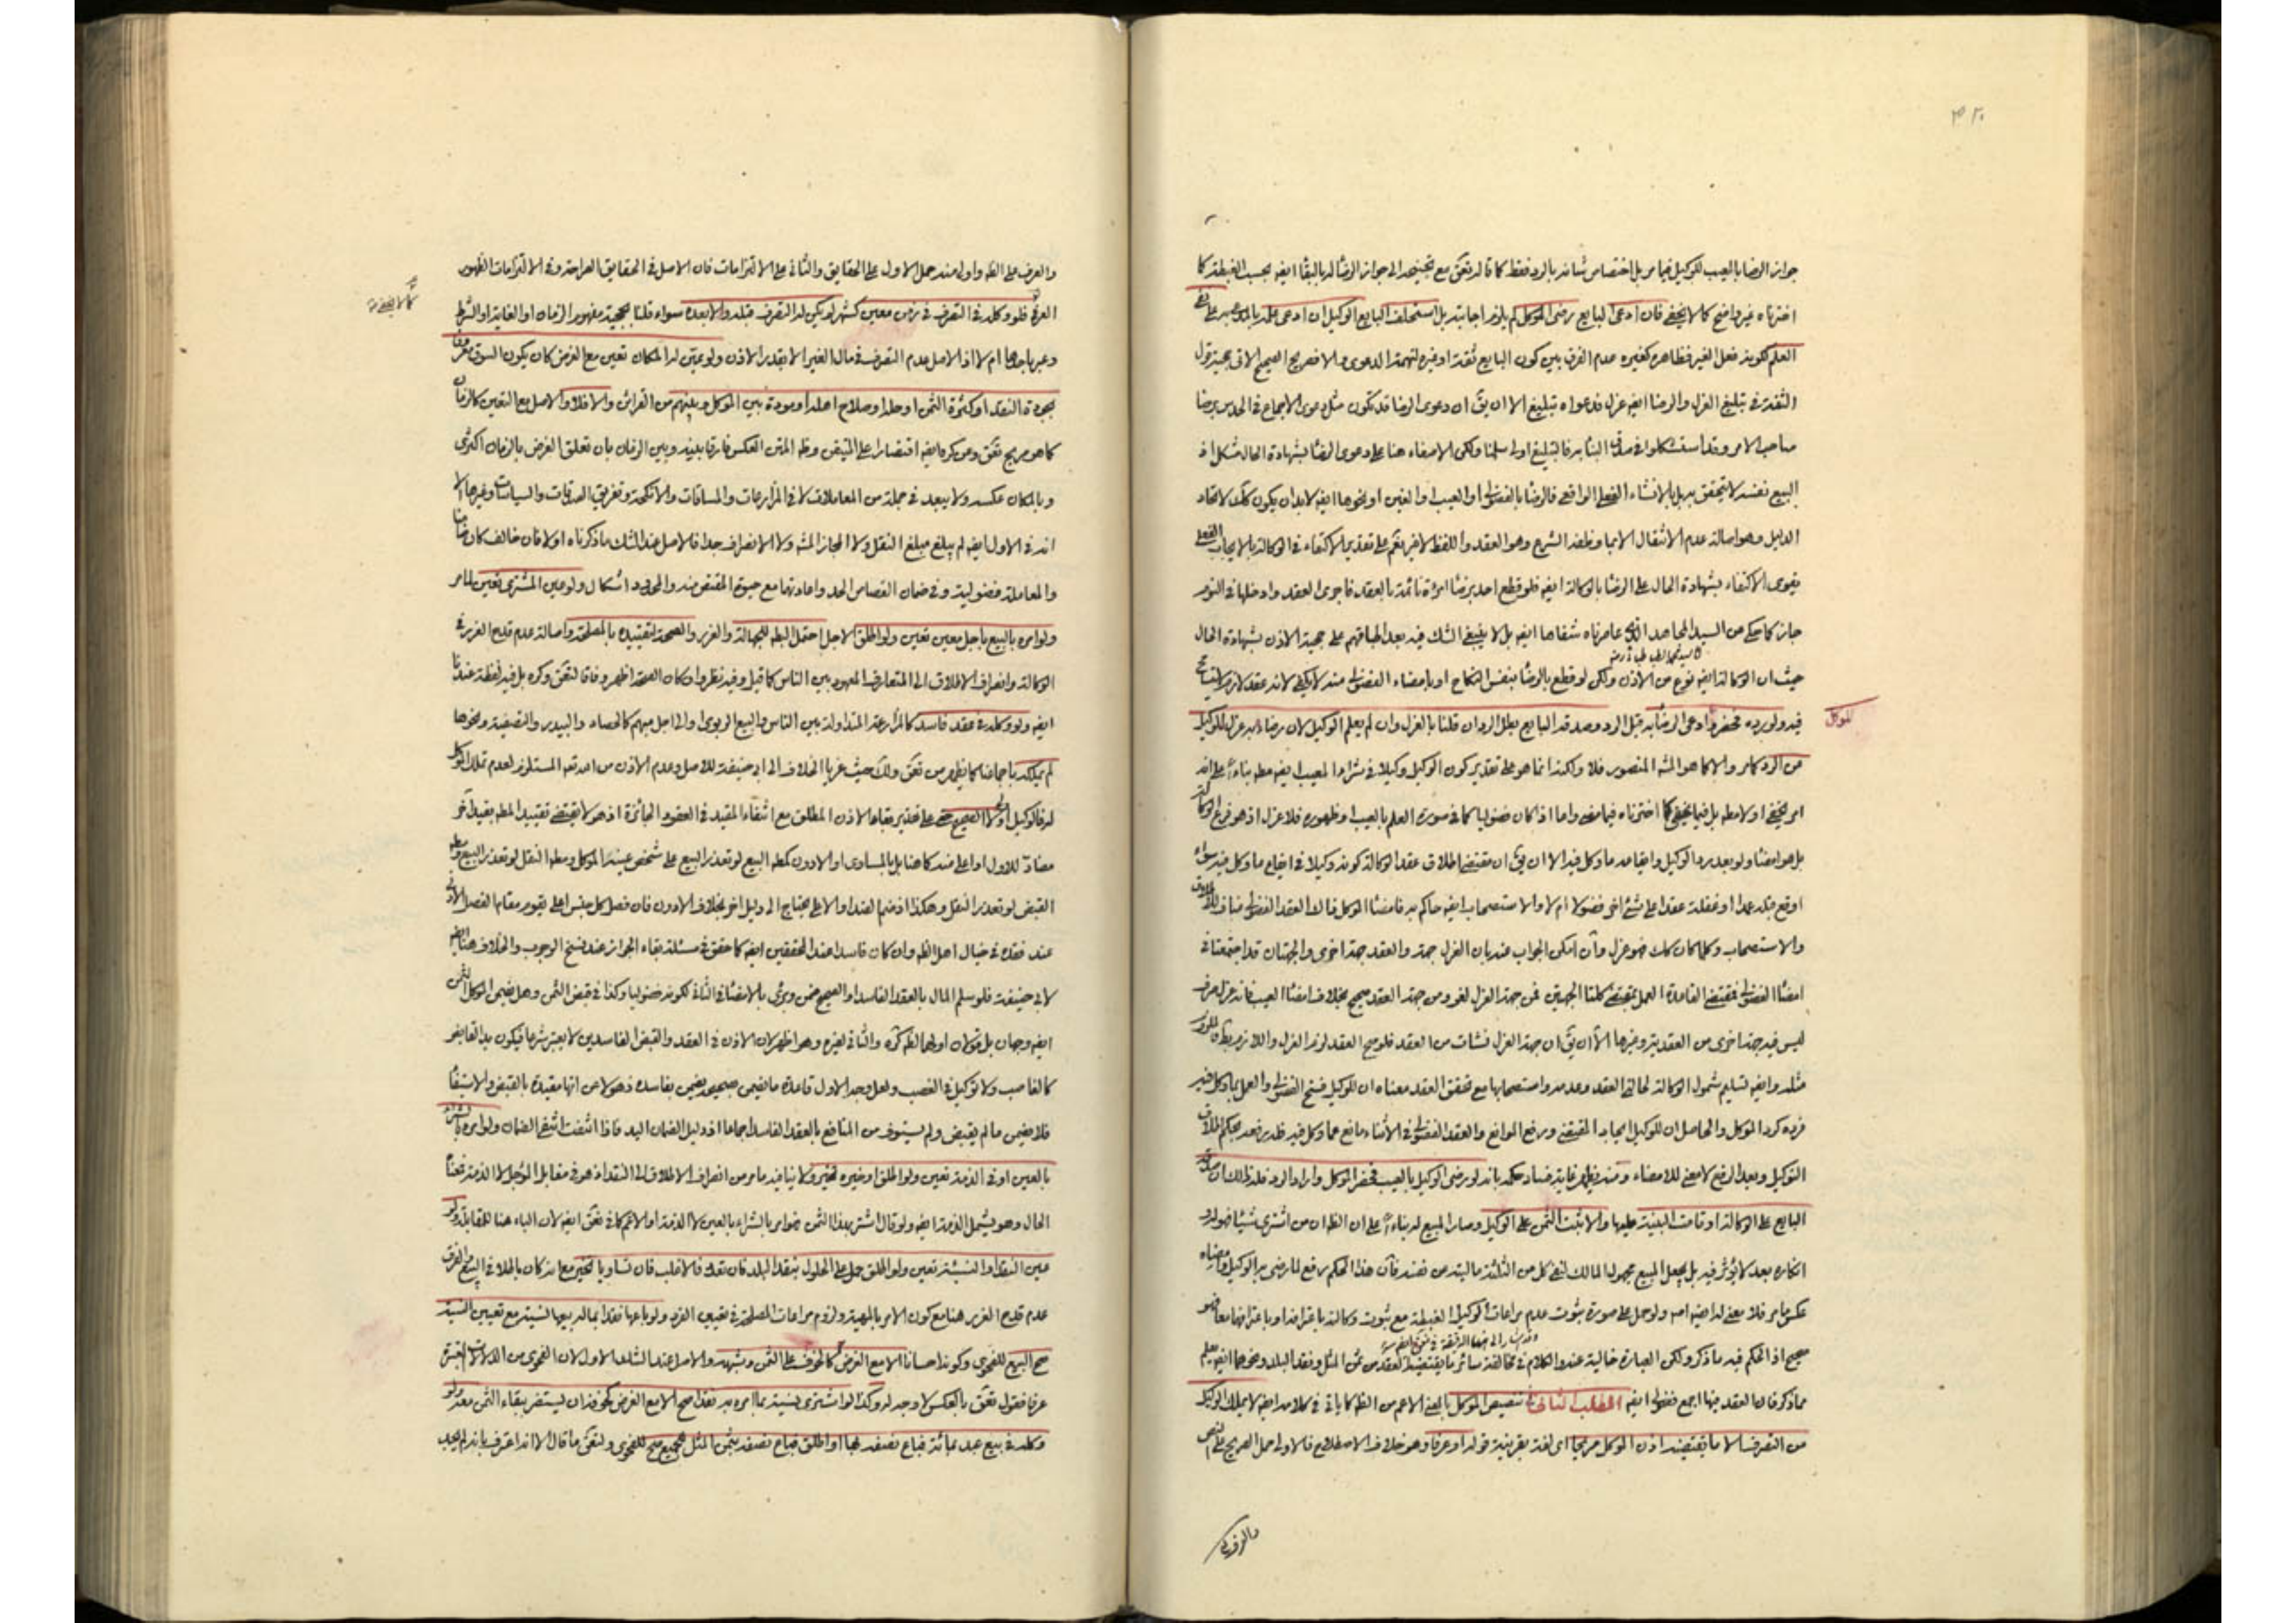 جواز الرضا بالعيب للوكيل فيما مر بل اختصاص شانه بالرد فقط كما قاله تحق مع تجنيحه الى جواز الرضا له بالبقا ايضه بحسب الغبطة كما
اخترناه غير واضح كما لا يخفى فان ادعى البايع رضى الموكل لم يلزم اجابته بل استحلف البايع الوكيل ان ادعى علمه
العلم لكونه فعل الغير فظاهره كغيره عدم الفرق بين كون البايع ثقة او غيره لتهمة الدعوى والا فصريح الصحيح الاتى بحجية قول
الثقة في تبليغ العزل والرضا ايضه عزل فدعواه تبليغ الا ان يق ان دعوى الرضا قد تكون مثل دعوى الاجماع في الحدس برضا
صاحب الامر وقد استشكلوا في صدق النبا به فالتبليغ اولى سلمنا ولكن الاصغاء هنا على دعوى الرضا بشهادة الحال مشكل اذ
البيع نفسه لا يتحقق به بل بالانشاء الفعلى الواقعى فالرضا بالفضولى او العيب او الغبن او نحوها ايضه لابد ان يكون كك لاتحاد
الدليل وهو اصالة عدم الانتقال الا بما وظفه الشرع وهو العقد واللفظ لا غير نعم على تقدير الاكتفاء في الوكالة بالايجاب الفعلى
يقوى الاكتفاء بشهادة الحال على الرضا بالوكالة ايضه فلو قطع احد برضا امراة نائمة بالعقد فاجرى العقد وادخلها في النوم
جاز كما حكى عن السيد المجاهد الذى عاصرناه شفاها ايضه بل لا ينبغى الشك فيه بعد اطباقهم على حجية الاذن بشهادة الحال
حيث ان الوكالة ايضه نوع من الاذن ولكن لو قطع بالرضا بنفس النكاح او بامضاء الفضولى منه لا يكفى لانه عقد لازم
فيه ولو رده فحضر وادعى الرضا به قبل الرد وصدقه البايع بطل الرد ان قلنا بالعزل وان لم يعلم الوكيل لان رضاءه به عزل للوكيل
للموكل
عن الرد كما مر والا كما هو المشه المنصور فلا ولكن هذا انما هو على تقدير كون الوكيل وكيلا في شراء المعيب ايضه مطه بناء على انه
امر يخفى اولا مطه بل فيما يخفى كما اخترناه فيما مضى واما اذا كان فضوليا كما في صورة العلم بالعيب او ظهوره فلا عزل اذ هو فرع الوكالة
بل هو امضا ولو بعد رد الوكيل وايقاعه ما وكل فيه الا ان يق ان مقتضى اطلاق عقد الوكالة كونه وكيلا في ايقاع ما وكل فيه سواء
اوقع قبله عمدا او غفلة عقدا على شئ اخر فضولا ام لا والاستصحاب ايضه حاكم به فامضا الموكل فالعقد الفضولى مناف للاطلاق
والاستصحاب وكلما كان كك فهو عزل وان امكن الجواب عنه بان العزل جهة والعقد جهة اخرى والجهتان قد اجتمعتا في
امضا الفضولى فمقتضى القاعدة العمل بمقتضى كلتا الجهتين فمن جهة العزل لغو ومن جهة العقد صحيح بخلاف امضا العيب فانه عزل صرف
ليس فيه جهة اخرى من العقدية وغيرها الا ان يق ان جهة العزل نشات من العقد فلو صح العقد لزم العزل واللازم بط فالملزوم
مثله وايضه تسليم شمول الوكالة لحالتى العقد وعدمه واستصحابها مع تحقق العقد معناه ان للوكيل فسخ الفضولى والعمل بما وكل فيه
فرده كرد الموكل والحاصل ان للوكيل ايجاد المقتضى ورفع الموانع والعقد الفضولى في الاثناء مانع عما وكل فيه فله رفعه بحكم اطلاق
التوكيل وبعد الرفع لا معنى للامضاء ومنه يظهر غاية فساد حكمه بانه لو رضى الوكيل بالعيب فحضر الموكل واراد الرد فله ذلك ان صدقه
البايع على الوكالة او قامت البينة عليها والا ثبت الثمن على الوكيل وصار المبيع له بناء على ان الظ ان من اشترى شيئا فهو له و
انكاره بعد لا يؤثر فيه بل يجعل المبيع مجهول المالك لنفى كل من الثلثة ماليته عن نفسه فان هذا الحكم رفع لما رضى به الوكيل
عكس ما مر فلا معنى له ايضه امه ولو حمل على صورة ثبوت عدم مراعاة الوكيل الغبطة مع ثبوت وكالته باعترافه او باعترافهما معا فهو
صحيح اذ الحكم فيه ما ذكر ولكن العبارة خالية عنه والكلام في مخالفة سائر ما يقتضيه العقد من ثمن المثل ونقد البلد ونحوهما ايضه يعلم
مما ذكر فان العقد فيها اجمع فضولى ايضه المطلب الثانى في تنصيص الموكل بالمعنى الاعم من الظ كما ياتى في كلامه ايضه لا يملك الوكيل
من التصرف الا ما يقتضيه اذن الموكل صريحا اى لغة بقرينة قوله او عرفا وهو خلاف الاصطلاح فالاولى حمل الصريح على النص
والعرف على الظ واولى منه حمل الاول على الحقايق والثانى على الالتزامات فان الاصل في الحقايق الصراحة وفي الالتزامات الظهور
العرفى فلو وكله في التصرف في زمن معين كشهر لم يكن له التصرف قبله ولا بعده سواء قلنا بحجية مفهوم الزمان او الغاية او الشرط
كما لا يخفى منه
وعبر باحدها ام لا اذ الاصل عدم التصرف في مال الغير الا بقدر الاذن ولو عين له المكان تعين مع الغرض كان يكون السوق معروفا
بجودة النقد او كثرة الثمن او حله او صلاح اهله او مودة بين الموكل وبينهم من القرائن والا فلا والاصل مع التعين كالزمان
كما هو صريح تحق وعن كره ايضه اقتصارا على المتيقن وظ المتن العكس فارقا بينه وبين الزمان بان تعلق الغرض بالزمان اكثرى
وبالمكان عكسه ولا يبعد في جملة من المعاملات لا في المزارعات والمساقات والانكحة وتفريق الصدقات والسياسات وغيرها الا
انه في الاول ايضه لم يبلغ مبلغ النقل ولا المجاز المشه ولا الانصراف جدا فالاصل عند الشك ما ذكرناه اولا فان خالف كان ضامنا
والمعاملة فضولية وفي ضمان القصاص الحد واعادتهما مع حيوة المقتص منه والمحدود اشكال ولو عين المشترى تعين لما مر
ولو امره بالبيع باجل معين تعين ولو اطلق الاجل احتمل البط للجهالة والغرر والصحة لتقييده بالمصلحة واصالة عدم قدح الغرر في
الوكالة وانصراف الاطلاق الى المتعارف المعهود بين الناس كما قيل وفيه نظر وان كان الصحة اظهر وفاقا لتحق وكره بل فيه لفظة عندنا
ايضه ولو وكله في عقد فاسد كالمزارعة المتداولة بين الناس والبيع الربوى او الى اجل مبهم كالحصاد والبيدر والتصفية ونحوها
لم يملكه باجماعنا كما يظهر من تحق ولك حيث عزيا الخلاف الى ابى حنيفة للاصل وعدم الاذن من الله تعه المستلزم لعدم تملك الموكل
له فالوكيل اولى ولا الصحيح على تقدير بقاء الاذن المطلق مع انتفاء المقيد في العقود الجائزة اذ هو لا يقتضى تقييد المطه بقيد اخر
مضاد للاول او اعلى منه كما هنا بل بالمساوى او الادون كمطه البيع لو تعذر البيع على شخص عينه الموكل ومطه النقل لو تعذر البيع ومطه
القبض لو تعذر النقل وهكذا اذ ضم الضد او الاعلى يحتاج الى دليل اخر بخلاف الادون فان فصل كل جنس اعلى يقوم مقام الفصل الادنى
عند فقده في خيال اهل الظ وان كان فاسدا عند المحققين ايضه كما حقق في مسئلة بقاء الجواز عند نسخ الوجوب والخلاف هنا ايضه
لابى حنيفة فلو سلم المال بالعقد الفاسد او الصحيح ضمن وبرئ بالامضا في الثانى لكونه فضوليا وكذا في قبض الثمن وهل يضمن الموكل الثمن
ايضه وجهان بل قولان اولهما لظ كره والثانى لغيره وهو اظهر لان الاذن في العقد والقبض الفاسدين لا يعتبر شرعا فيكون يد القابض
كالغاصب ولا توكيل في الغصب ولعل وجه الاول قاعدة ما يضمن صحيحه يضمن بفاسده ذهولا عن انها مقيدة بالقبض والاستيفا
فلا يضمن ما لم يقبض ولم يستوف من المنافع بالعقد الفاسد اجماعا اذ دليل الضمان اليد فاذا انتفت انتفى الضمان ولو امره بالشراء
بالعين او في الذمة تعين ولو اطلق او خيره تخير ولا ينافيه ما مر من انصراف الاطلاق الى النقد اذ هو في مقابل المؤجل لا الذمة فمعناه
الحال وهو يشمل الذمة ايضه ولو قال اشتر بهذا الثمن فهو امر بالشراء بالعين لا الذمة او الاعم كما في تحق ايضه لان الباء هنا للمقابلة ولو
عين النقد او النسيئة تعين ولو اطلق حمل على الحلول بنقد البلد فان تعدد فالاغلب فان تساويا تخير معا انه كان باطلا في البيع
عدم قدح الغرر هنا مع كون الامر بالمهية ولزوم مراعات المصلحة في تعيين الفرد ولو باعها نقدا بما له بيعها نسية مع تعيين النسية
صح البيع للفحوى وكونه احسانا الا مع الغرض كالخوف على الثمن وشبهه والاصل عند الشك الاول لان الفحوى من الدلالات المعتبرة
عرفا فقول تحق بالعكس لا وجه له وكذا لو اشترى نسية بما امره به نقدا صح الا مع الغرض كخوف ان يستضر ببقاء الثمن معه ولو
وكله في بيع عبد بمائة فباع نصفه بها او اطلق فباع نصفه بثمن المثل للجميع صح للفحوى ولتحق ما قال الا انه اعترف بانه لم يجد
والعرف على